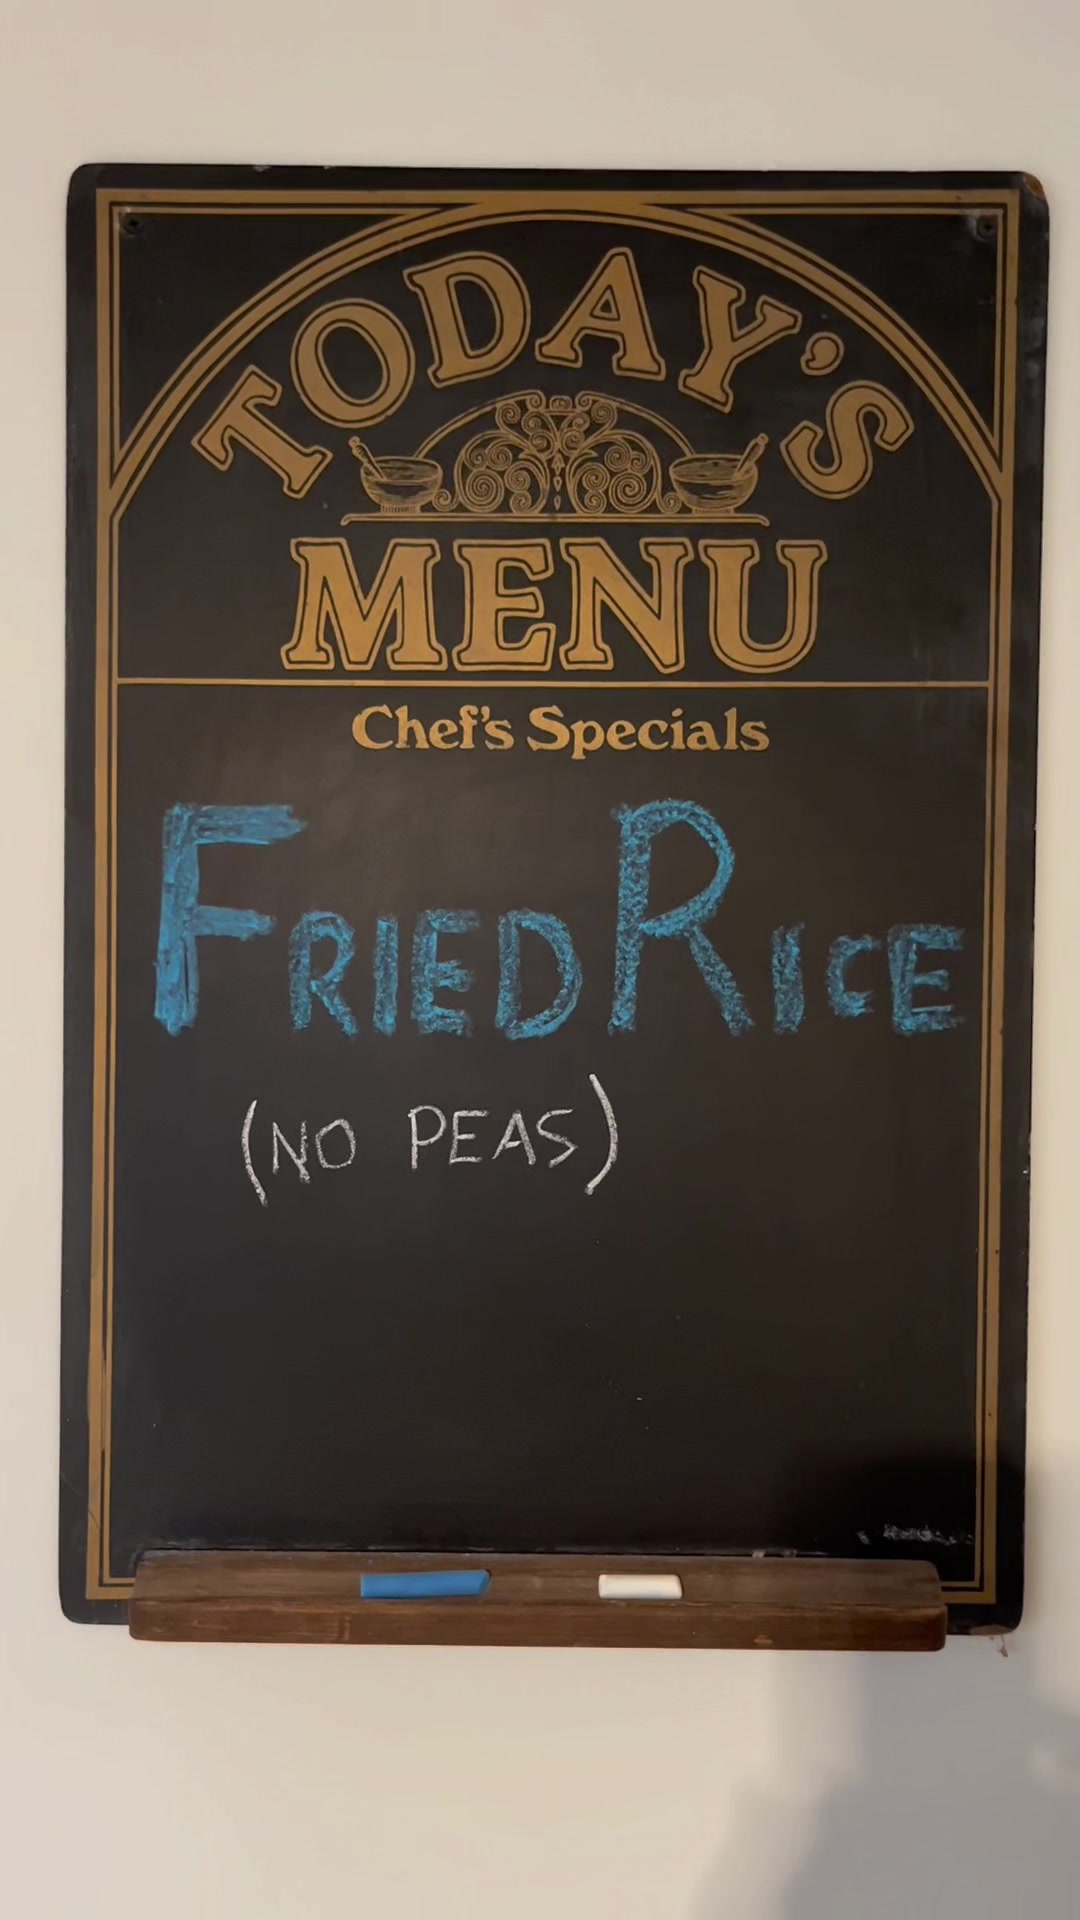 TODAY'S
MENU
Chef's Specials
FRIED RICE
(NO PEAS)